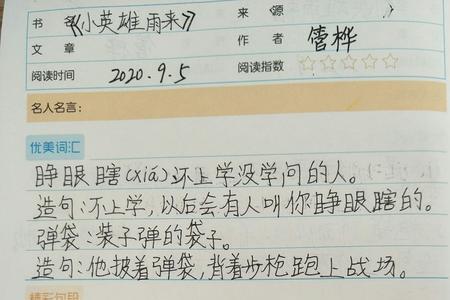 书 名 《小英雄雨来》 来 源
文 章 作 者 管桦
阅读时间 2020.9.5 阅读指数 ☆☆☆☆☆
名人名言:
优美词汇
睁眼瞎(xiā):不上学没学问的人。
造句:不上学,以后会有人叫你睁眼瞎的。
弹袋:装子弹的袋子。
造句:他披着弹袋,背着步枪跑上战场。
精彩句段